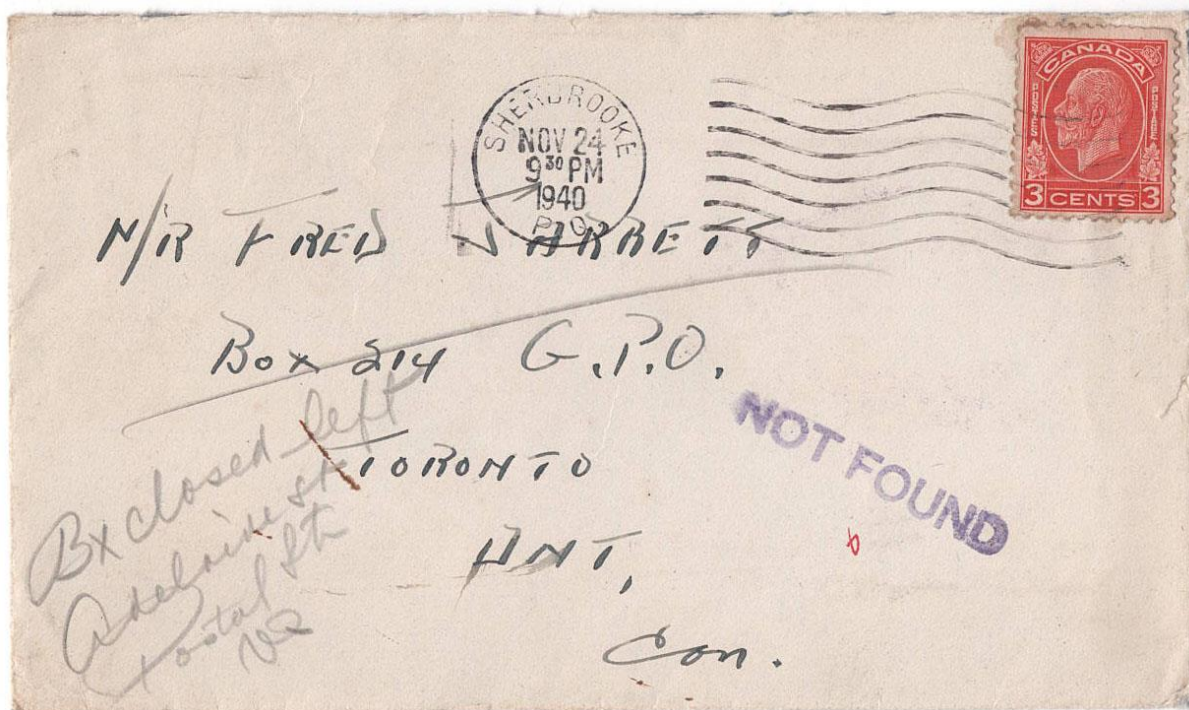 CANADA
POSTES POSTAGE
3 CENTS 3
SHERBROOKE
NOV 24
9 30 PM
1940
P.Q.
M/R FRED JARRETT
Box 214 G.P.O.
TORONTO
ONT,
Can.
NOT FOUND
Bx closed left
Adelaide St
Postal Stn